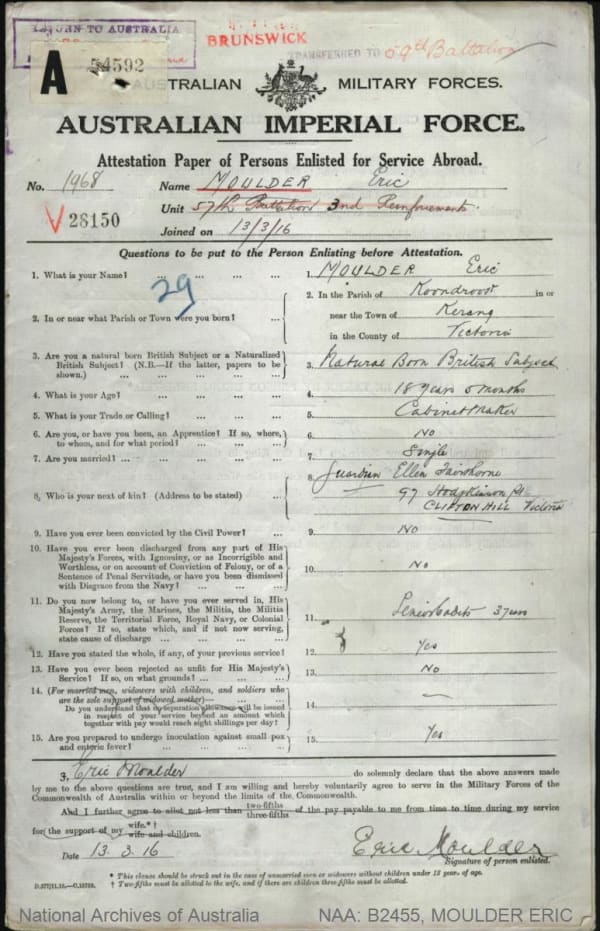 RETURN TO AUSTRALIA
BRUNSWICK
TRANSFERRED TO 59th Battalion
A 54592
AUSTRALIAN MILITARY FORCES.
AUSTRALIAN IMPERIAL FORCE.
Attestation Paper of Persons Enlisted for Service Abroad.
No. 1968 Name MOULDER Eric
V 28150 Unit 57th Battalion 3nd Reinforcements
Joined on 13/3/16
Questions to be put to the Person Enlisting before Attestation.
29
1. What is your Name? ... ... ... ... 1. MOULDER Eric
2. In or near what Parish or Town were you born? ... 2. In the Parish of in or
near the Town of Kerang
in the County of Victoria
3. Are you a natural born British Subject or a Naturalized
British Subject? (N.B.—If the latter, papers to be
shown.) ... ... ... ... 3. Natural Born British Subject
4. What is your Age? ... ... ... ... 4. 18 years 5 months
5. What is your Trade or Calling? ... ... ... 5. Cabinet Maker
6. Are you, or have you been, an Apprentice? If so, where,
to whom, and for what period? ... ... ... 6. NO
7. Are you married? ... ... ... ... ... 7. Single
8. Who is your next of kin? (Address to be stated) ... 8. Guardian Ellen
97 Hodgkinson St
CLIFTON HILL Victoria
9. Have you ever been convicted by the Civil Power? ... 9. NO
10. Have you ever been discharged from any part of His
Majesty's Forces, with Ignominy, or as Incorrigible and
Worthless, or on account of Conviction of Felony, or of a
Sentence of Penal Servitude, or have you been dismissed
with Disgrace from the Navy? ... ... ... 10. No
11. Do you now belong to, or have you ever served in, His
Majesty's Army, the Marines, the Militia, the Militia
Reserve, the Territorial Force, Royal Navy, or Colonial
Forces? If so, state which, and if not now serving,
state cause of discharge ... ... ... ... 11. Senior Cadets 3 years
12. Have you stated the whole, if any, of your previous service? 12. Yes
13. Have you ever been rejected as unfit for His Majesty's
Service? If so, on what grounds? ... ... ... 13. No
14. (For married men, widowers with children, and soldiers who
are the sole support of widowed mother)—
Do you understand that no separation allowance will be issued
in respect of your service beyond an amount which
together with pay would reach eight shillings per day? 14. —
15. Are you prepared to undergo inoculation against small pox
and enteric fever? ... ... ... ... 15. Yes
I, Eric Moulder do solemnly declare that the above answers made
by me to the above questions are true, and I am willing and hereby voluntarily agree to serve in the Military Forces of the
Commonwealth of Australia within or beyond the limits of the Commonwealth.
And I further agree to allot not less than two-fifths three-fifths of the pay payable to me from time to time during my service
for the support of my wife*† wife and children.
Date 13.3.16 Eric Moulder
Signature of person enlisted.
* This clause should be struck out in the case of unmarried men or widowers without children under 18 years of age.
† Two-fifths must be allotted to the wife, and if there are children three-fifths must be allotted.
National Archives of Australia NAA: B2455, MOULDER ERIC